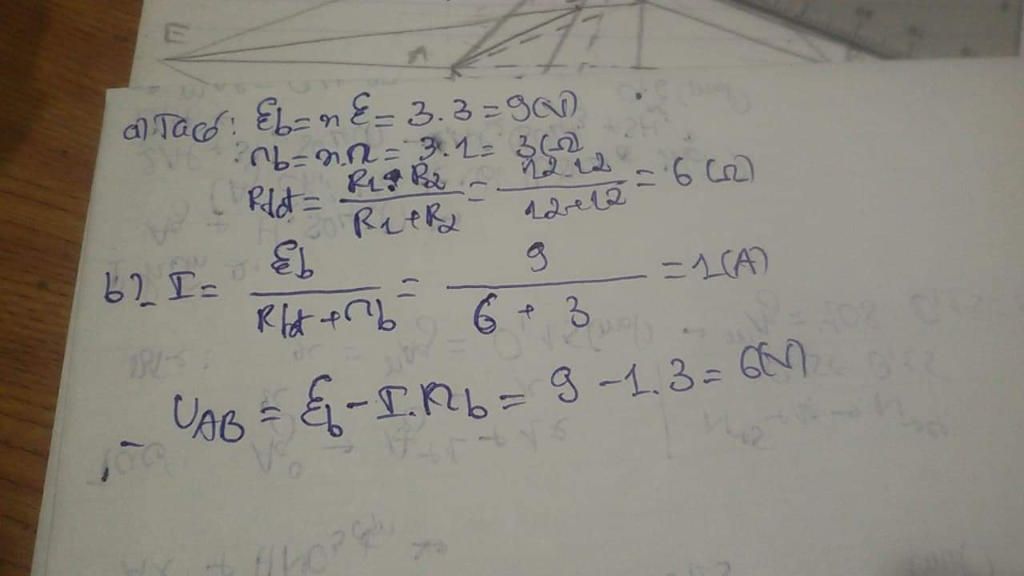 E
A
a) Ta có: ξb = nξ = 3.3 = 9(V)
rb = n.r = 3.1 = 3(Ω
Rtđ = R1.R2 / R1+R2 = 12.12 / 12+12 = 6(Ω)
b)_ I = ξb / Rtđ+rb = 9 / 6 + 3 = 1(A)
- UAB = ξb - I.rb = 9 - 1.3 = 6(V)